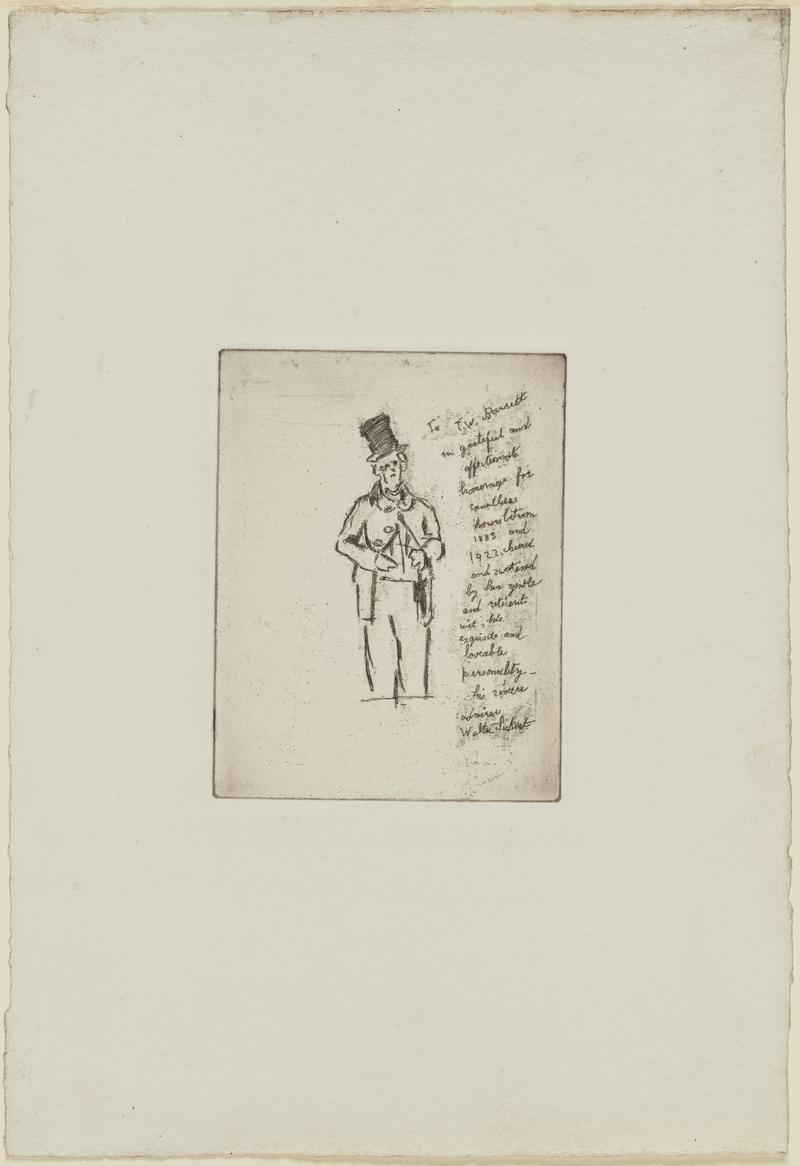 To T.W. Barrett
in grateful and
affectionate
homage for
countless
hours between
1885 and
1922, cheered
and
by his gentle
and reticent
wit, his
exquisite and
loveable
personality –
his sincere
admirer
Walter Sickert